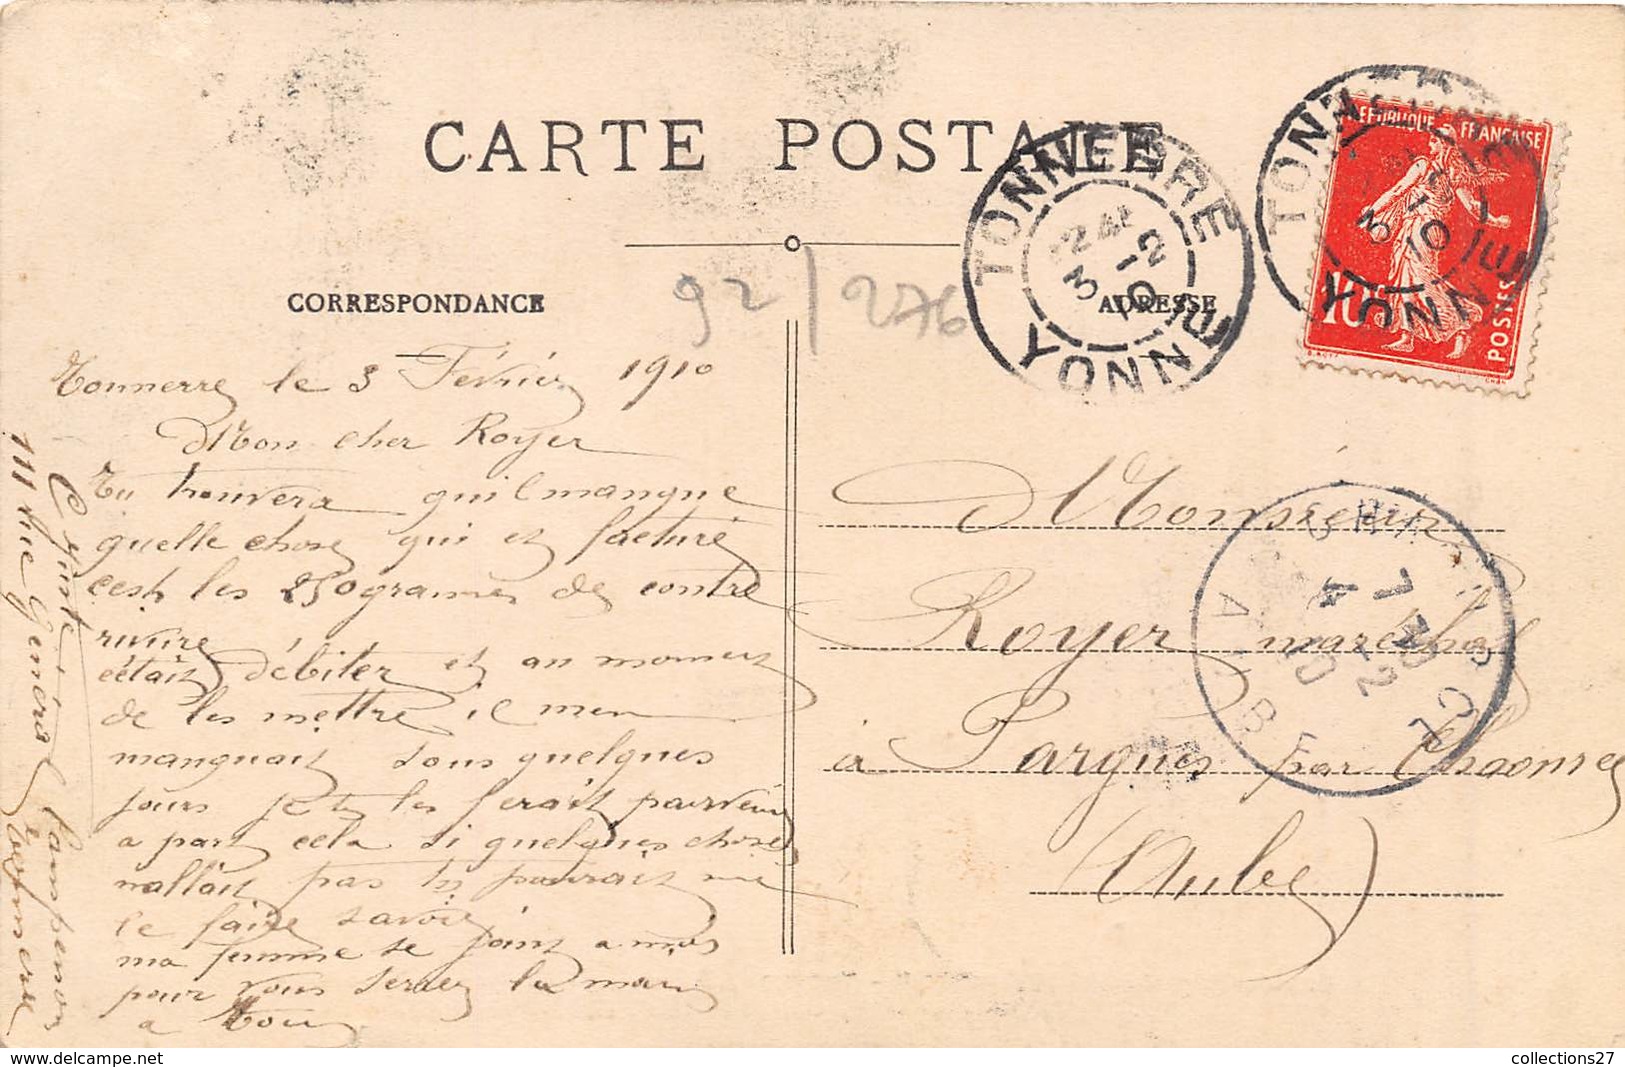 CARTE POSTALE
CORRESPONDANCE
ADRESSE
92 / 276
TONNERRE
3 -2
10
YONNE
TONNERRE
3 -2
10
YONNE
REPUBLIQUE FRANÇAISE
10c
POSTES
Tonnerre le 3 Février 1910
Mon cher Royer
Tu trouvera quil manque
quelle chose qui et facturé
cest les 250 grames de contre
rivure
cétait débiter et au moment
de les mettre il men
manquait sous quelques
jours je te les ferait parvenir
a part cela si quelques chose
nallait pas tu pourrait me
le faire savoir
ma femme se joint a moi
pour vous serrer la main
a tous
111 Rue General
Tonnerre
Monsieur
Royer maréchal
à Pargues par Chaource
(Aube)
4 -2
10
AUBE
collections27